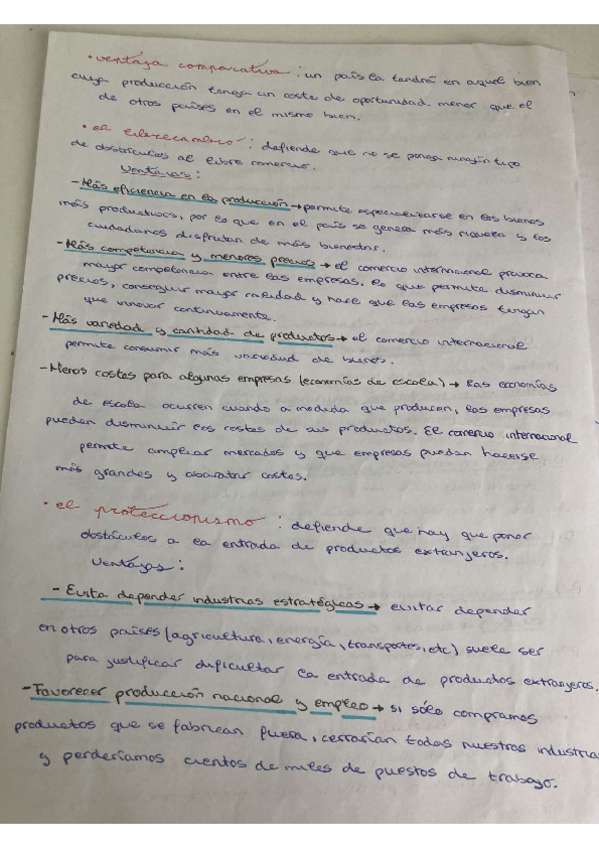 • ventaja comparativa : un país la tendrá en aquel bien
cuya producción tenga un coste de oportunidad menor que el
de otros países en el mismo bien.
• el librecambio : defiende que no se ponga ningún tipo
de obstáculos al libre comercio.
Ventajas :
- Más eficiencia en la producción → permite especializarse en los bienes
más productivos, por lo que en el país se genera más riqueza y los
ciudadanos disfrutan de más bienestar.
- Más competencia y menores precios → el comercio internacional provoca
mayor competencia entre las empresas, lo que permite disminuir
precios, conseguir mayor calidad y hace que las empresas tengan
que innovar continuamente.
- Más variedad y cantidad de productos → el comercio internacional
permite consumir más variedad de bienes.
- Menos costes para algunas empresas (economías de escala) → las economías
de escala ocurren cuando a medida que producen, las empresas
pueden disminuir los costes de sus productos. El comercio internacional
permite ampliar mercados y que empresas puedan hacerse
más grandes y abaratar costes.
• el proteccionismo : defiende que hay que poner
obstáculos a la entrada de productos extranjeros.
Ventajas :
- Evita depender industrias estratégicas → evitar depender
en otros países (agricultura, energía, transportes, etc) suele ser
para justificar dificultar la entrada de productos extranjeros.
- Favorecer producción nacional y empleo → si sólo compramos
productos que se fabrican fuera, cerrarían todas nuestras industrias
y perderíamos cientos de miles de puestos de trabajo.